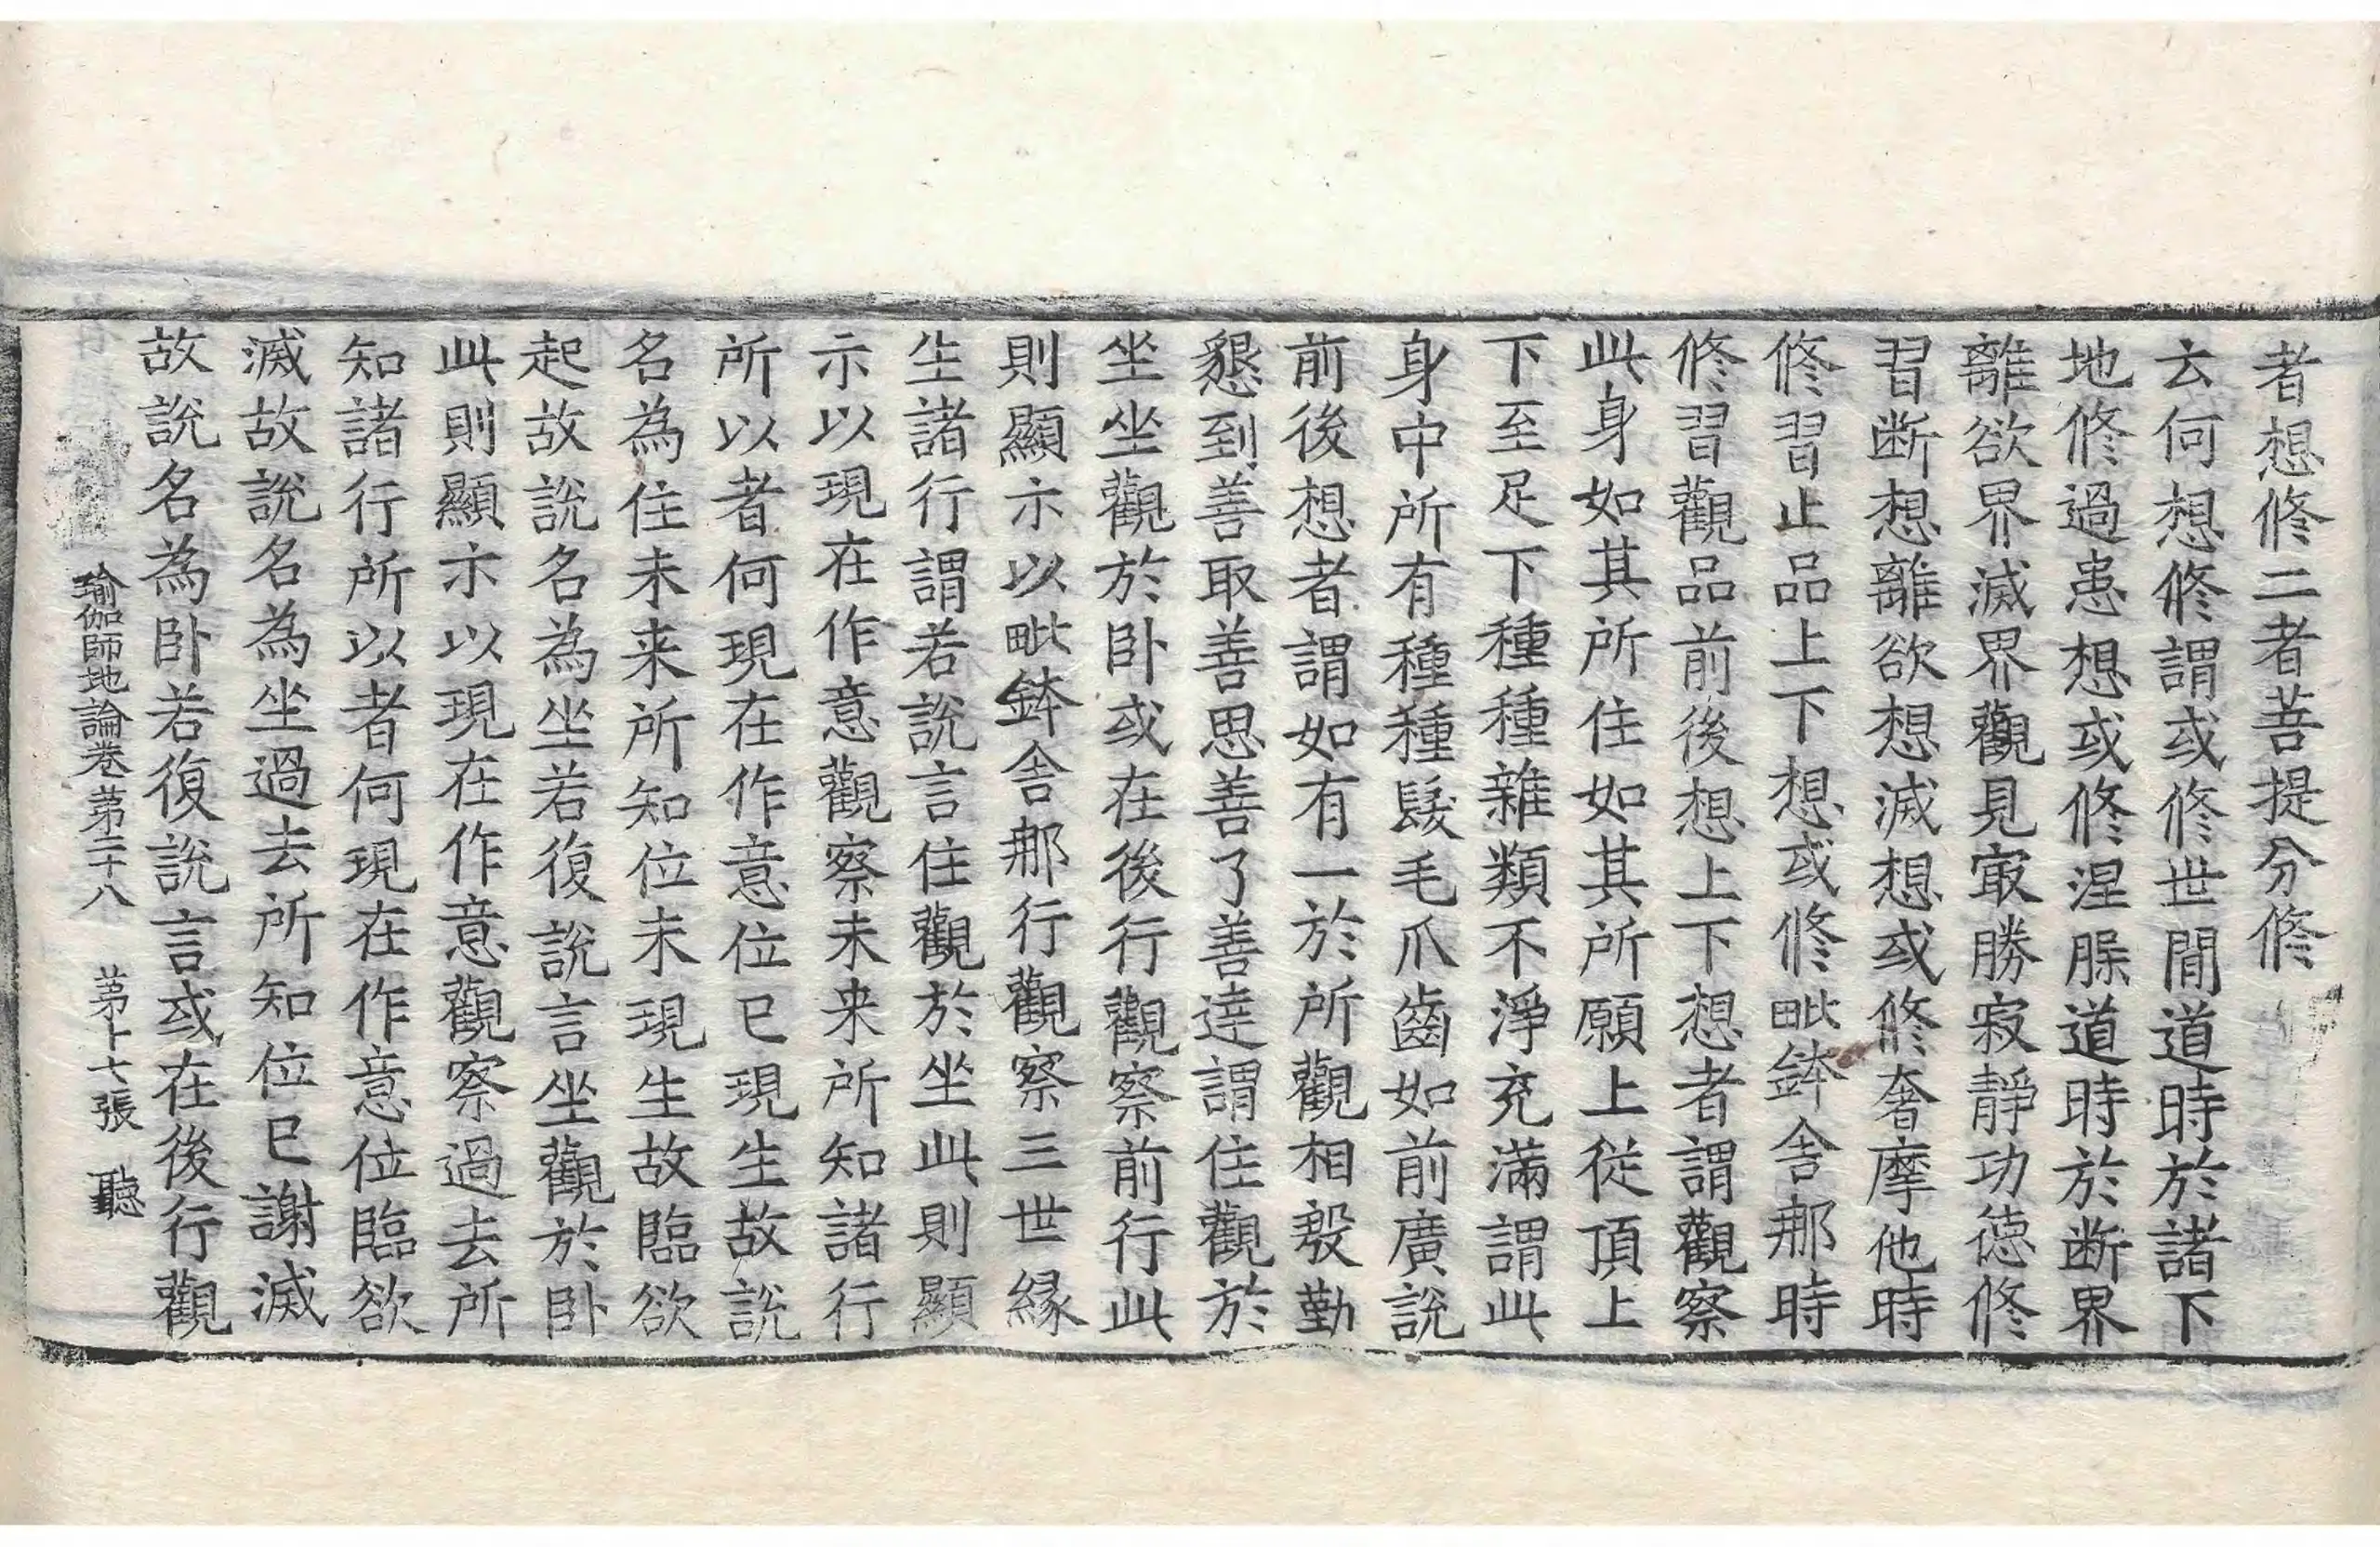 者想修二者菩提分修
云何想修謂或修世間道時於諸下
地修過患想或修涅脲道時於断界
離欲界滅界觀見㝡勝寂靜功徳修
習断想離欲想滅想或修奢摩他時
修習止品上下想或修毗鉢舍那時
修習觀品前後想上下想者謂觀察
此身如其所住如其所願上從頂上
下至足下種種雜類不淨充滿謂此
身中所有種種髮毛爪齒如前廣說
前後想者謂如有一於所觀相殷勤
懇到善取善思善了善達謂住觀於
坐坐觀於卧或在後行觀察前行此
則顯示以毗鉢舍那行觀察三世縁
生諸行謂若說言住觀於坐此則顯
示以現在作意觀察未来所知諸行
所以者何現在作意位已現生故說
名為住未来所知位未現生故臨欲
起故說名為坐若復說言坐觀於卧
此則顯示以現在作意觀察過去所
知諸行所以者何現在作意位臨欲
滅故說名為坐過去所知位已謝滅
故說名為卧若復說言或在後行觀
瑜伽師地論卷第二十八　第十七張　聽